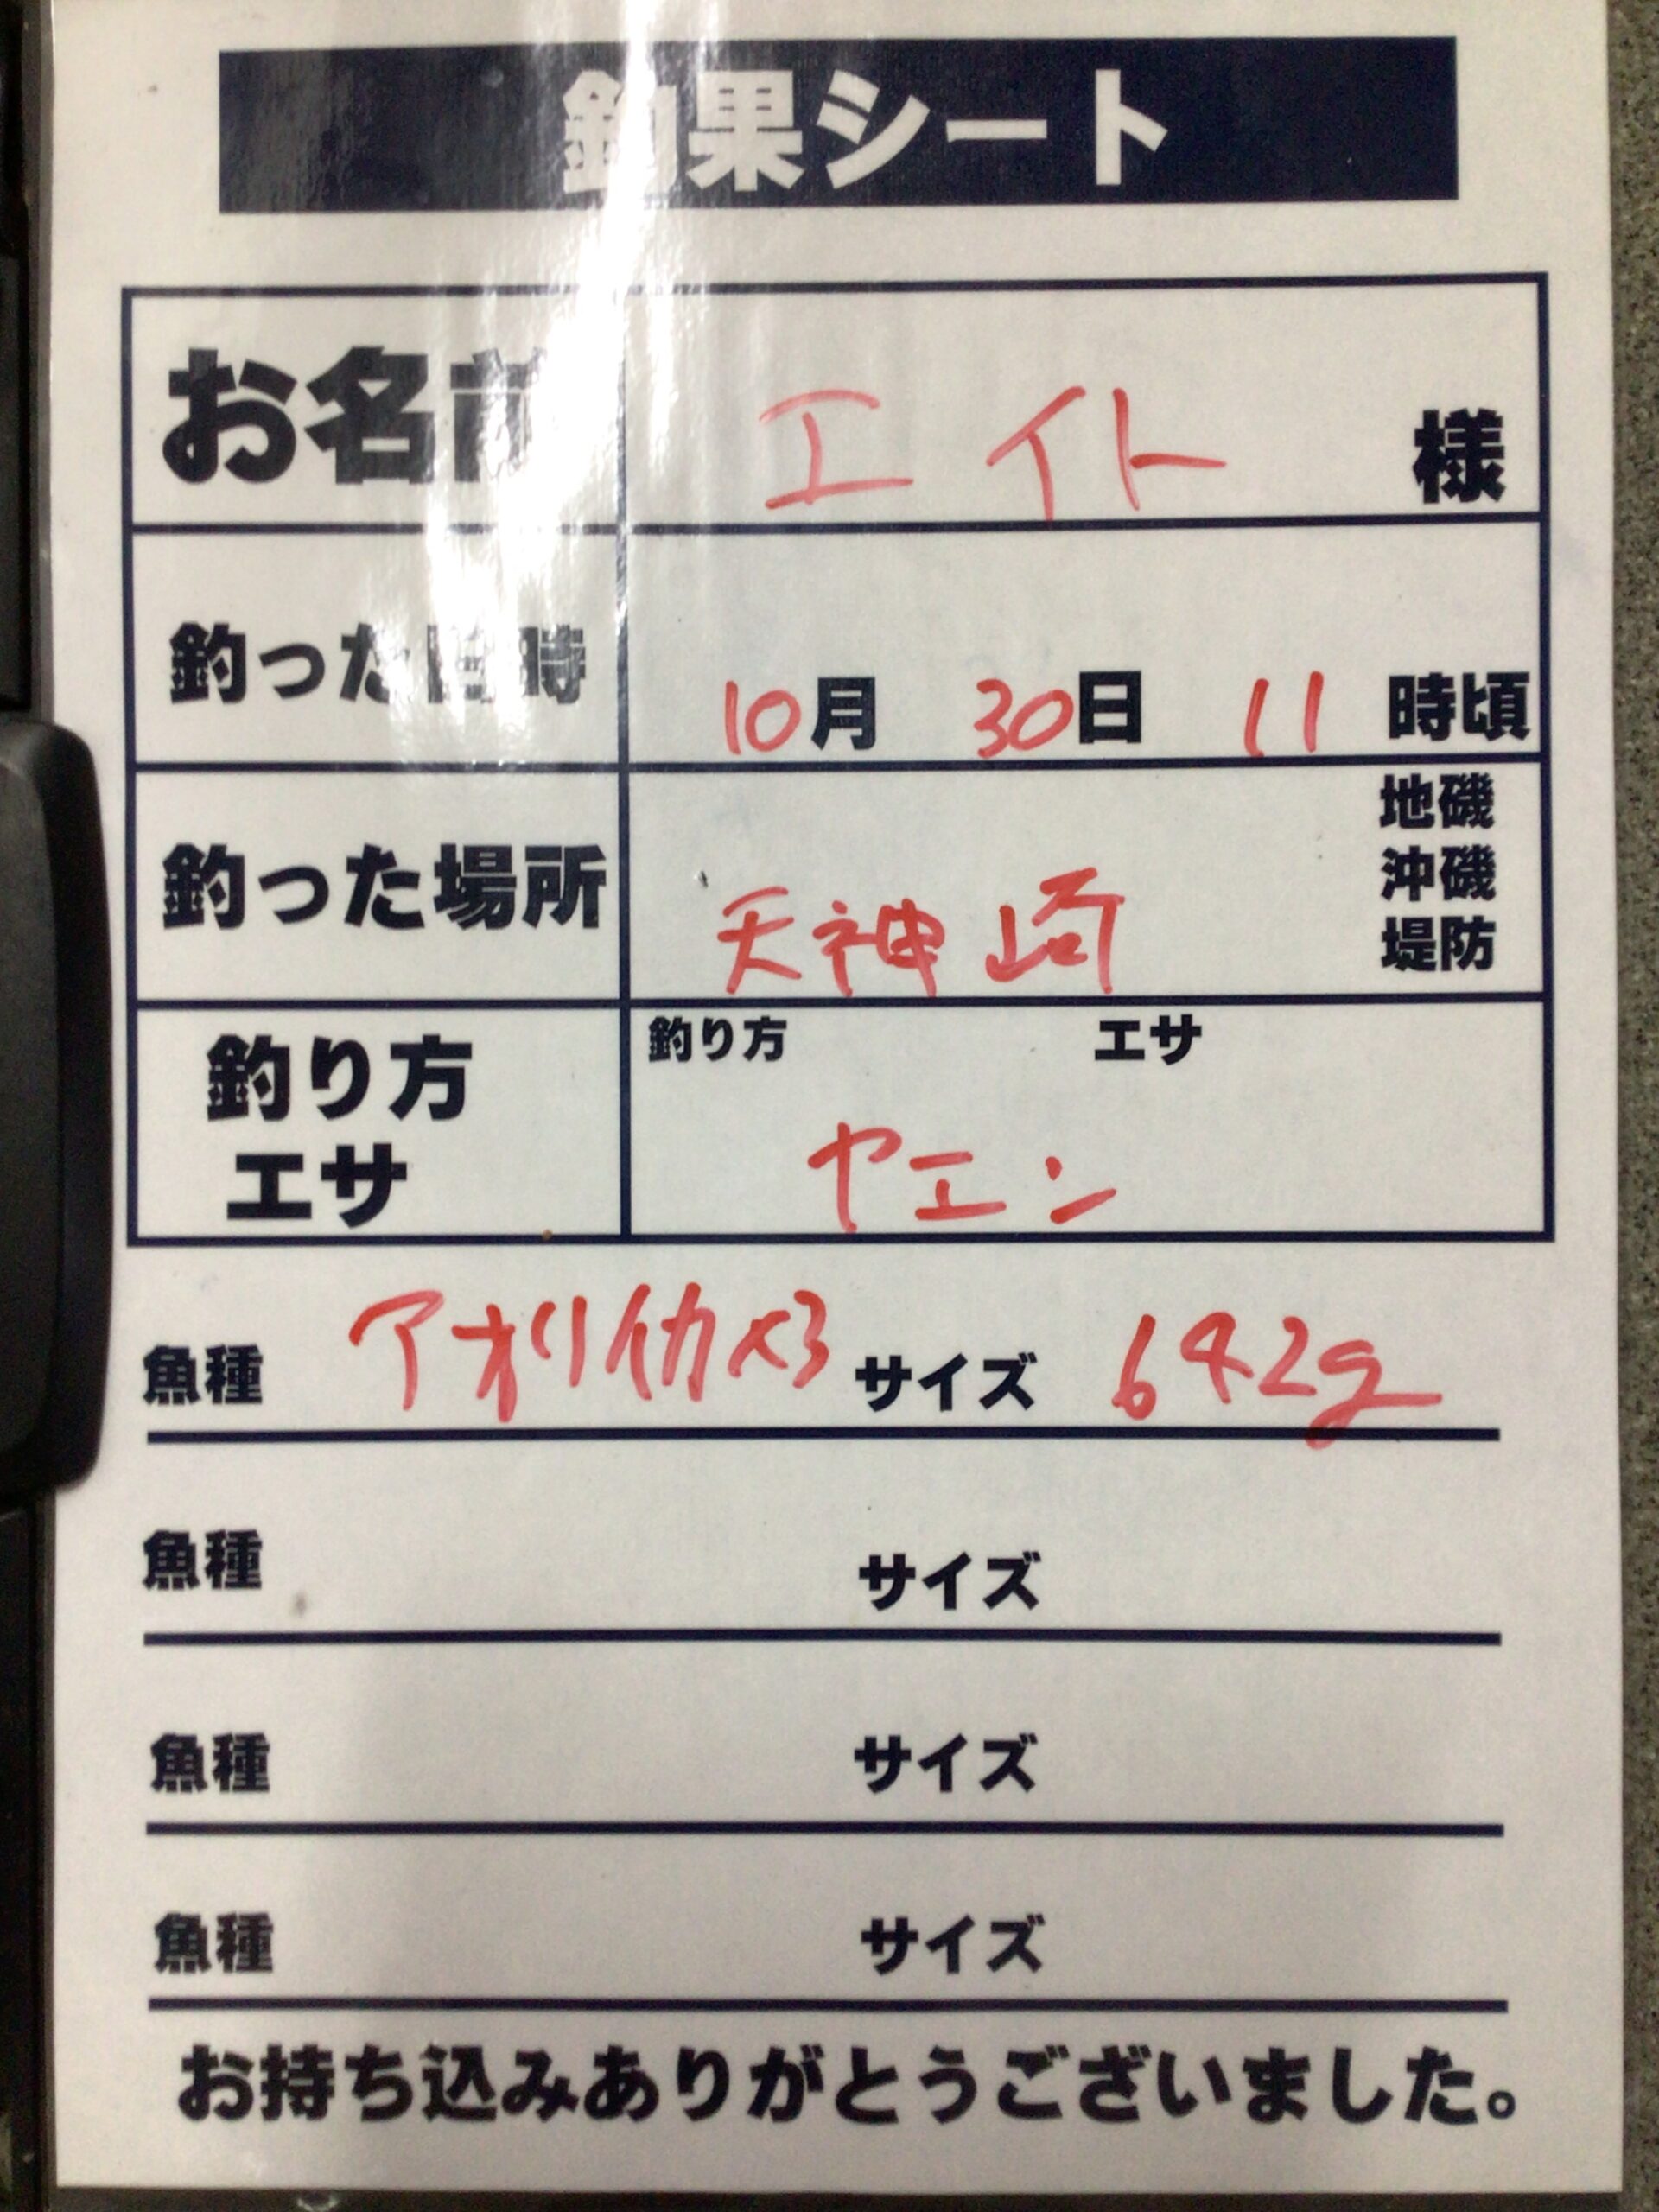 釣果シート
お名前 エイト 様
釣った日時 10月 30日 11 時頃
釣った場所 天神崎 地磯
沖磯
堤防
釣り方 エサ
釣り方
エサ
ヤエン
魚種 アオリイカ×3 サイズ 642g
魚種 サイズ
魚種 サイズ
魚種 サイズ
お持ち込みありがとうございました。